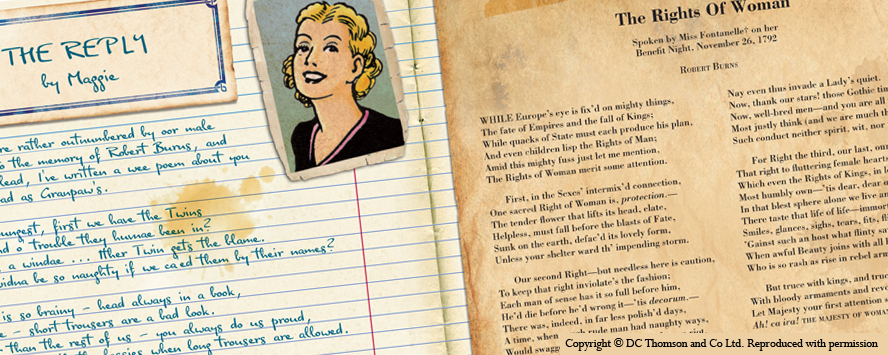 THE REPLY
by Maggie
re rather outnumbered by oor male
o the memory of Robert Burns, and
lead, I've written a wee poem about you
ad as Granpaw's.
ungest, first we have the Twins
d o' trouble they humae been in?
a windae ... ither Twin gets the blame.
widna be so naughty if we caed them by their names?
is so brainy – head always in a book,
e – short trousers are a bad look.
than the rest of us – you always do us proud,
lassies when long trousers are allowed.
The Rights Of Woman
Spoken by Miss Fontanelle? on her
Benefit Night, November 26, 1792
ROBERT BURNS
WHILE Europe's eye is fix'd on mighty things,
The fate of Empires and the fall of Kings;
While quacks of State must each produce his plan,
And even children lisp the Rights of Man;
Amid this mighty fuss just let me mention,
The Rights of Woman merit some attention.
First, in the Sexes' intermix'd connection,
One sacred Right of Woman is, protection.—
The tender flower that lifts its head, elate,
Helpless, must fall before the blasts of Fate,
Sunk on the earth, defac'd its lovely form,
Unless your shelter ward th' impending storm.
Our second Right—but needless here is caution,
To keep that right inviolate's the fashion;
Each man of sense has it so full before him,
He'd die before he'd wrong it—'tis decorum.—
There was, indeed, in far less polish'd days,
A time, when rude man had naughty ways,
Would swagg
Nay even thus invade a Lady's quiet.
Now, thank our stars! those Gothic tim
Now, well-bred men—and you are all
Most justly think (and we are much th
Such conduct neither spirit, wit, nor
For Right the third, our last, our
That right to fluttering female heart
Which even the Rights of Kings, in l
Most humbly own—'tis dear, dear a
In that blest sphere alone we live an
There taste that life of life—immor
Smiles, glances, sighs, tears, fits, f
'Gainst such an host what flinty sa
When awful Beauty joins with all
Who is so rash as rise in rebel arm
But truce with kings, and truc
With bloody armaments and rev
Let Majesty your first attention
Ah! ca ira! THE MAJESTY OF WOMA
Copyright © DC Thomson and Co Ltd. Reproduced with permission